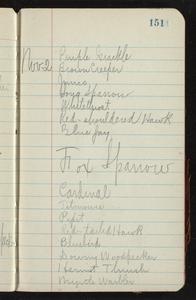 151
Nov 2 Purple Grackle
Brown Creeper
Junco
Song Sparrow
Whitethroat
Red-shouldered Hawk
Blue Jay
Fox Sparrow
Cardinal
Titmouse
Pipit
Red-tailed Hawk
Bluebird
Downy Woodpecker
Hermit Thrush
Myrtle Warbler